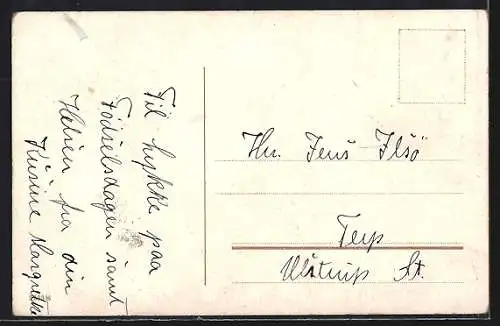 Til lykke paa
Fødselsdagen samt
Hilsen fra din
Kusine Margrethe
Hr. Jens Ilsø
Terp
Ulstrup St.